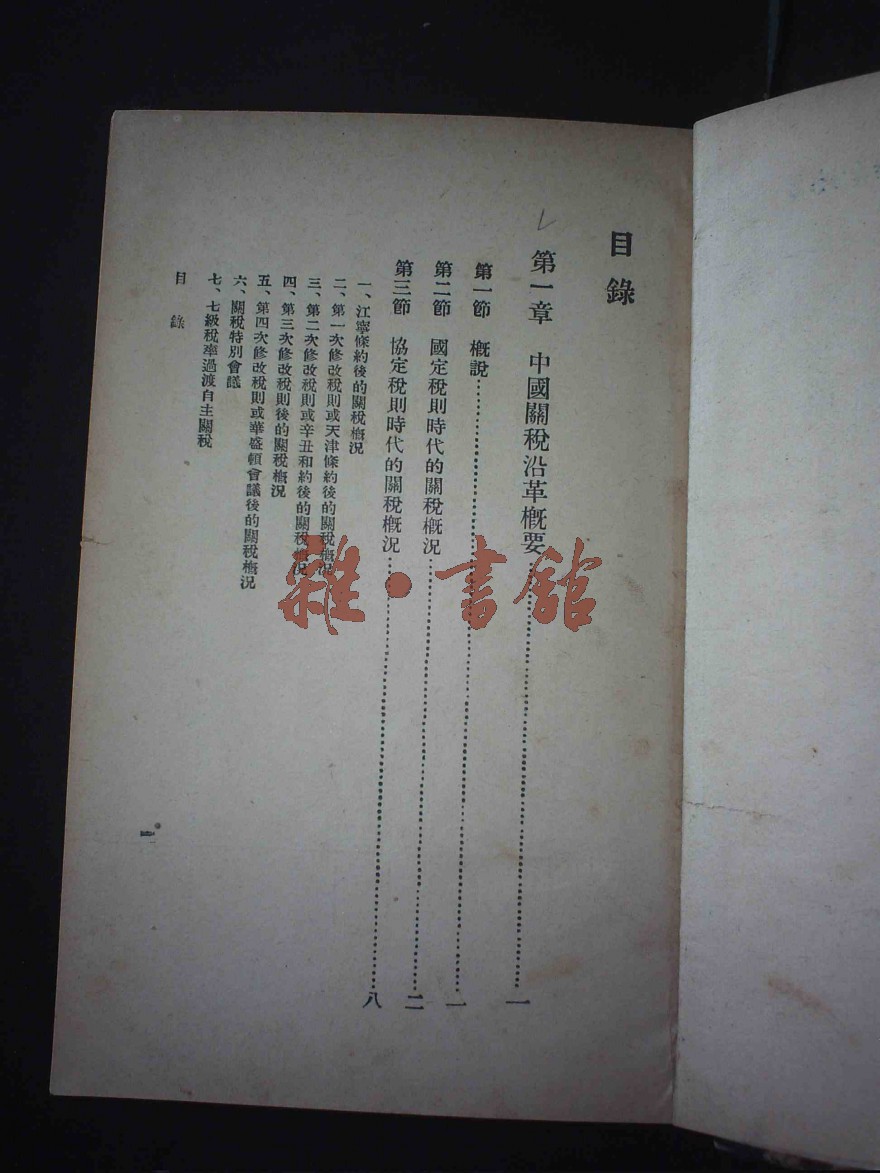 目錄
第一章 中國關稅沿革概要……一
第一節 概說……一
第二節 國定稅則時代的關稅概況……二
第三節 協定稅則時代的關稅概況……八
一、江寧條約後的關稅概況
二、第一次修改稅則或天津條約後的關稅概況
三、第二次修改稅則或辛丑和約後的關稅概況
四、第三次修改稅則後的關稅概況
五、第四次修改稅則或華盛頓會議後的關稅概況
六、關稅特別會議
七、七級稅率過渡自主關稅
目錄
一
雜·書館